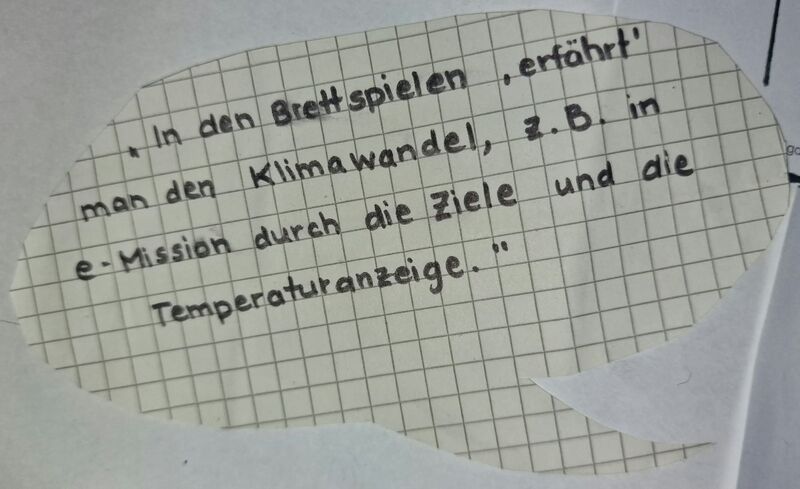 „In den Brettspielen ‚erfährt'
man den Klimawandel, z.B. in
e-Mission durch die Ziele und die
Temperaturanzeige."